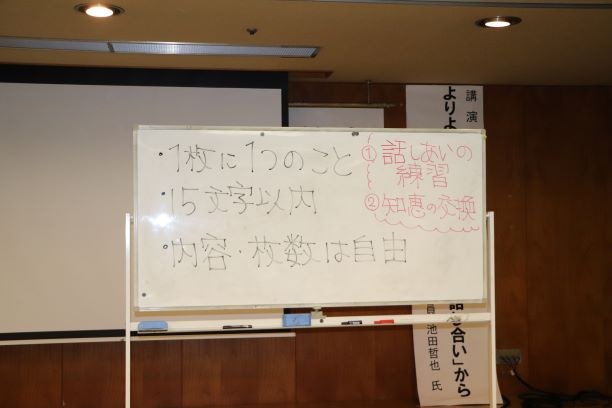 ・1枚に1つのこと
・15文字以内
・内容・枚数は自由
① 話しあいの
練習
② 知恵の交換
講演
よりよ
話し合い」から
員 池田哲也 氏